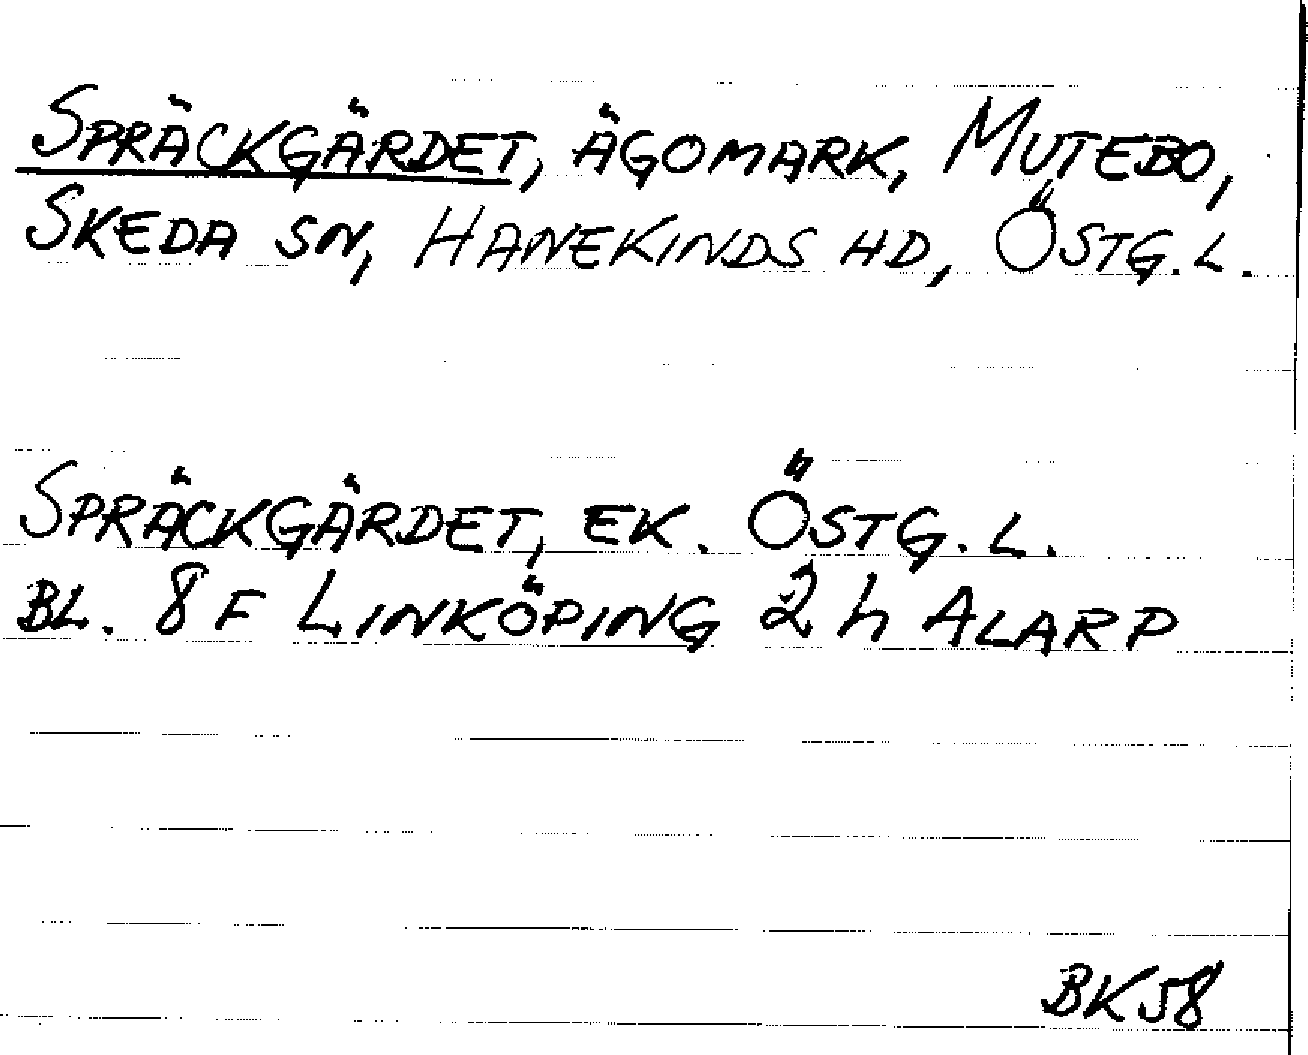 SPRÄCKGÄRDET, ÄGOMARK, MUTEBO,
SKEDA SN, HANEKINDS HD, ÖSTG. L.
SPRÄCKGÄRDET, EK. ÖSTG. L.
BL. 8 F LINKÖPING 2 h ALARP
BK58